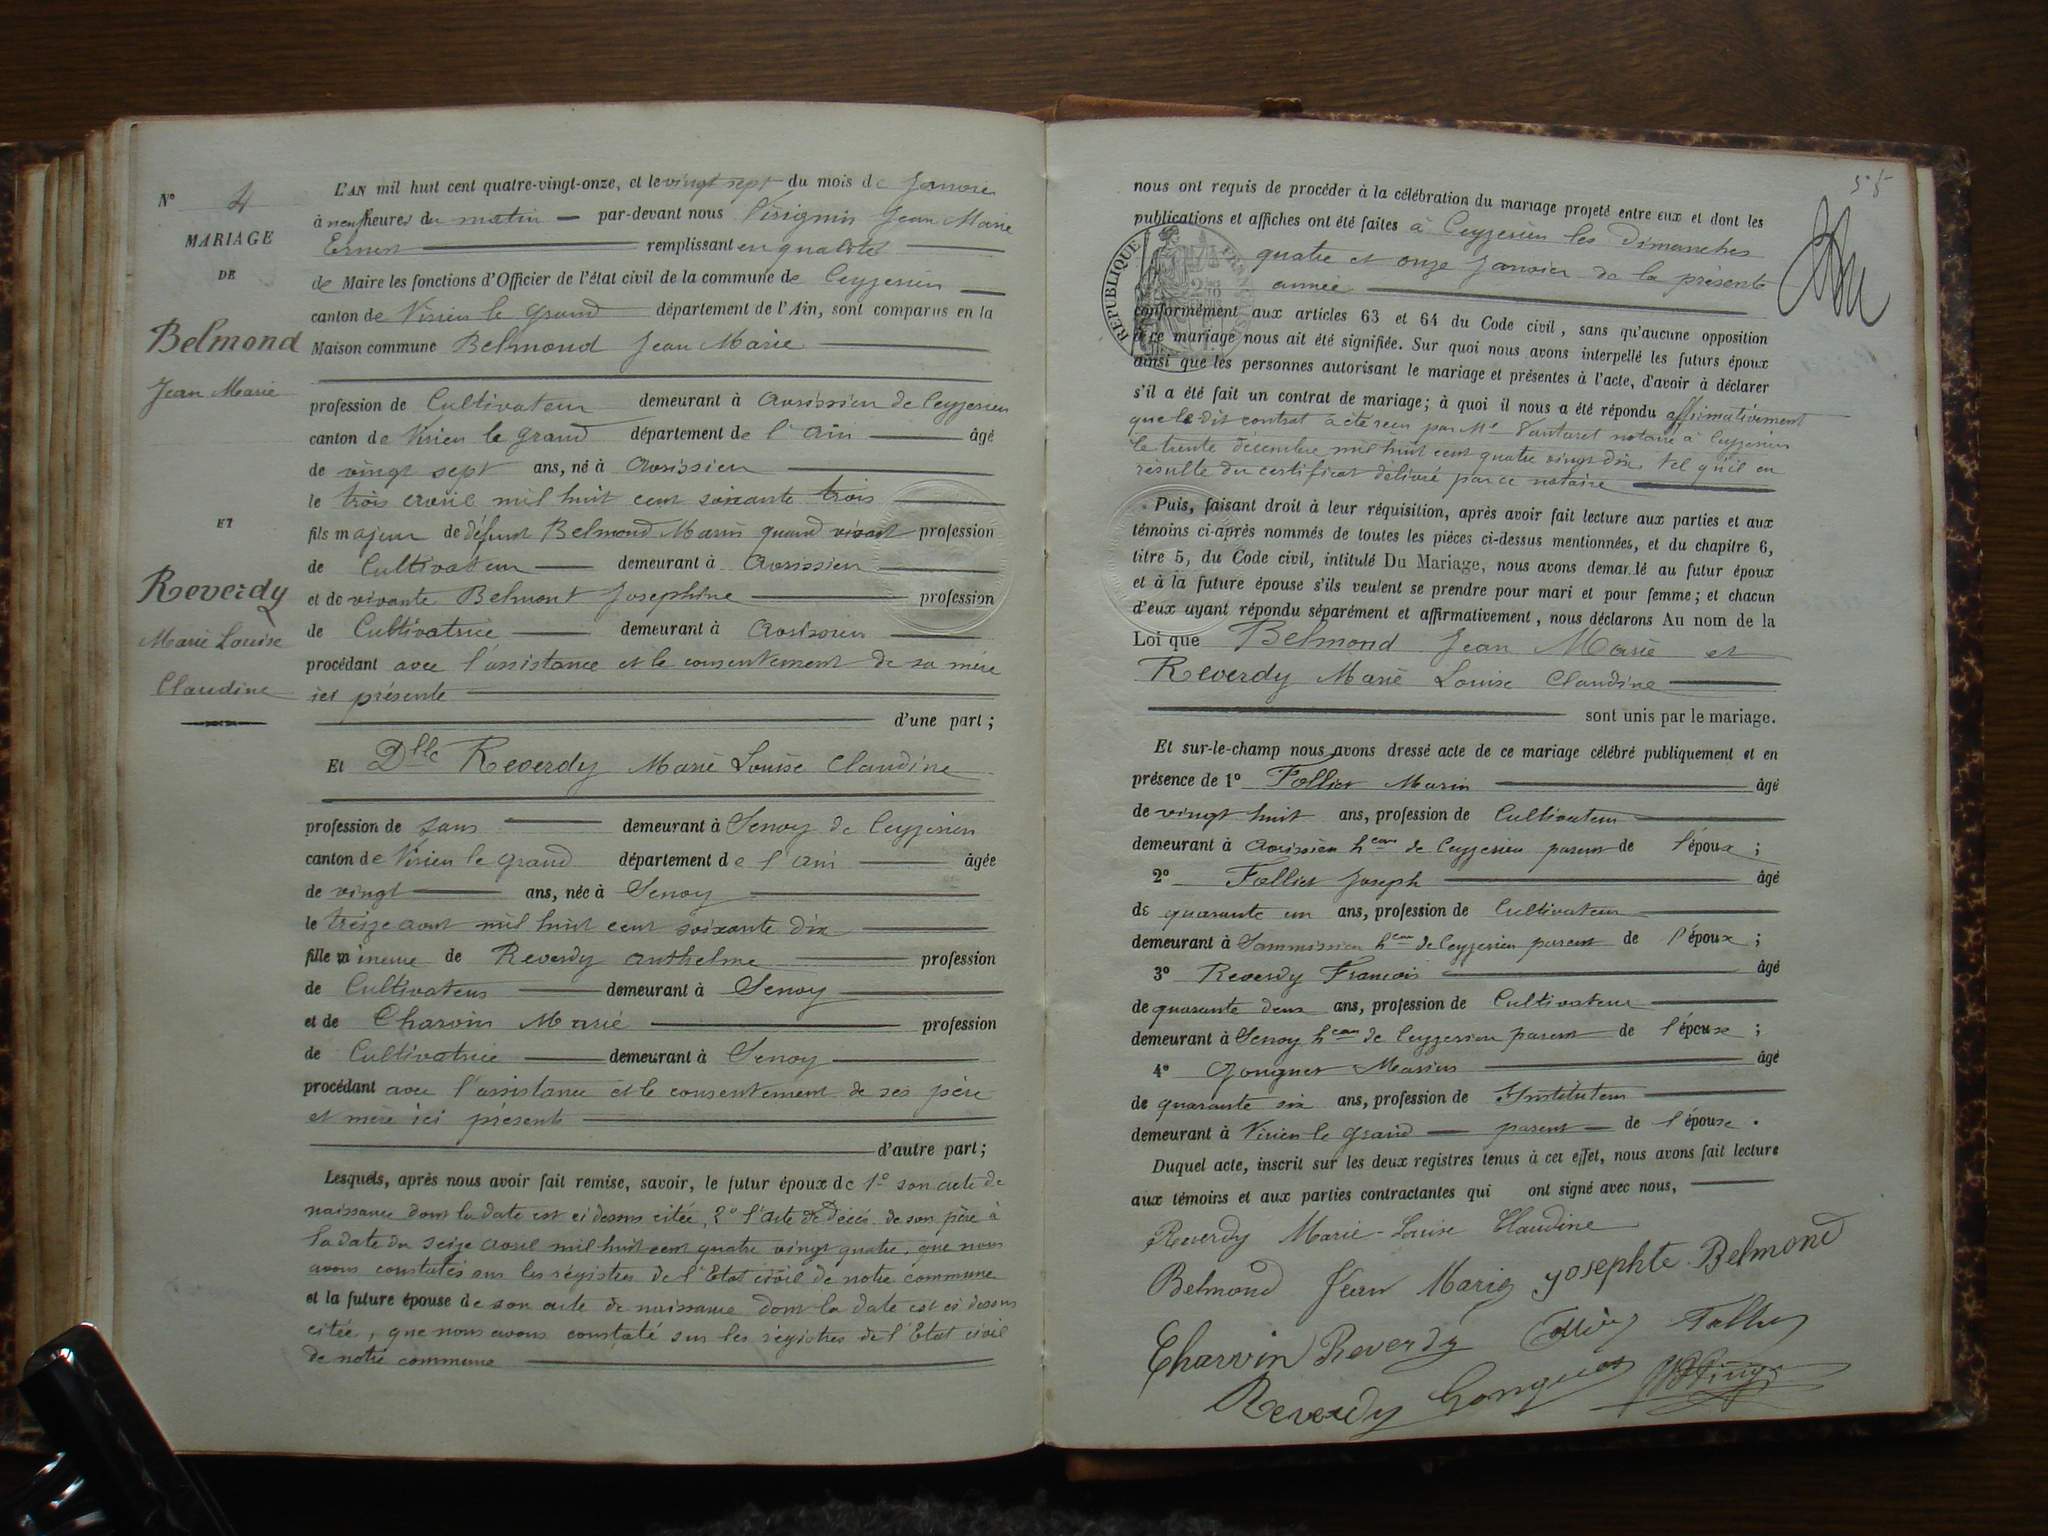 N° 4
MARIAGE
DE
Belmond
Jean Marie
ET
Reverdy
Marie Louise
Claudine
L'AN mil huit cent quatre-vingt-onze, et le vingt sept du mois de Janvier
à neuf heures du matin — par-devant nous Virignin Jean Marie
Ernest — remplissant en qualité
de Maire les fonctions d'Officier de l'état civil de la commune de Ceyzerieu
canton de Virieu le grand département de l'Ain, sont comparus en la
Maison commune Belmond Jean Marie
profession de Cultivateur demeurant à Avrissieu de Ceyzerieu
canton de Virieu le grand département de l'Ain âgé
de vingt sept ans, né à Avrissieu
le trois avril mil huit cent soixante trois
fils majeur de défunt Belmond Marin quand vivant profession
de Cultivateur demeurant à Avrissieu
et de vivante Belmont Josephine profession
de Cultivatrice demeurant à Avrissieu
procédant avec l'assistance et le consentement de sa mère
ici présente
d'une part ;
Et Dlle Reverdy Marie Louise Claudine
profession de sans demeurant à Senoy de Ceyzerieu
canton de Virieu le grand département de l'Ain âgée
de vingt ans, née à Senoy
le treize aout mil huit cent soixante dix
fille mineure de Reverdy Anthelme profession
de Cultivateur demeurant à Senoy
et de Charvin Marie profession
de Cultivatrice demeurant à Senoy
procédant avec l'assistance et le consentement de ses père
et mère ici présents
d'autre part ;
Lesquels, après nous avoir fait remise, savoir, le futur époux de 1° son acte de
naissance dont la date est ci dessus citée, 2° l'acte de Décès de son père à
la date du seize avril mil huit cent quatre vingt quatre, que nous
avons constatés sur les régistres de l'Etat civil de notre commune
et la future épouse de son acte de naissance dont la date est ci dessus
citée, que nous avons constaté sur les régistres de l'Etat civil
de notre commune
55
nous ont requis de procéder à la célébration du mariage projeté entre eux et dont les
publications et affiches ont été faites à Ceyzerieu les Dimanches
quatre et onze Janvier de la présente
année
RÉPUBLIQUE FRANÇAISE
conformément aux articles 63 et 64 du Code civil, sans qu'aucune opposition
à ce mariage nous ait été signifiée. Sur quoi nous avons interpellé les futurs époux
ainsi que les personnes autorisant le mariage et présentes à l'acte, d'avoir à déclarer
s'il a été fait un contrat de mariage ; à quoi il nous a été répondu affirmativement
que le dit contrat a été reçu par Me Vantaret notaire à Ceyzerieu
le trente décembre mil huit cent quatre vingt dix tel qu'il en
résulte du certificat délivré par ce notaire
Puis, faisant droit à leur réquisition, après avoir fait lecture aux parties et aux
témoins ci-après nommés de toutes les pièces ci-dessus mentionnées, et du chapitre 6,
titre 5, du Code civil, intitulé Du Mariage, nous avons demandé au futur époux
et à la future épouse s'ils veulent se prendre pour mari et pour femme ; et chacun
d'eux ayant répondu séparément et affirmativement, nous déclarons Au nom de la
Loi que Belmond Jean Marie et
Reverdy Marie Louise Claudine
sont unis par le mariage.
Et sur-le-champ nous avons dressé acte de ce mariage célébré publiquement et en
présence de 1° Follier Marin âgé
de vingt huit ans, profession de Cultivateur
demeurant à Avrissieu heau de Ceyzerieu parent de l'époux ;
2° Follier Joseph âgé
de quarante un ans, profession de Cultivateur
demeurant à Sammissieu heau de Ceyzerieu parent de l'époux ;
3° Reverdy François âgé
de quarante deux ans, profession de Cultivateur
demeurant à Senoy heau de Ceyzerieu parent de l'épouse ;
4° Gonguet Marius âgé
de quarante six ans, profession de Instituteur
demeurant à Virieu le Grand — parent — de l'épouse.
Duquel acte, inscrit sur les deux registres tenus à cet effet, nous avons fait lecture
aux témoins et aux parties contractantes qui ont signé avec nous,
Reverdy Marie-Louise Claudine
Belmond Jean Marie Josephte Belmond
Charvin Reverdy Follier
Reverdy Gonguet